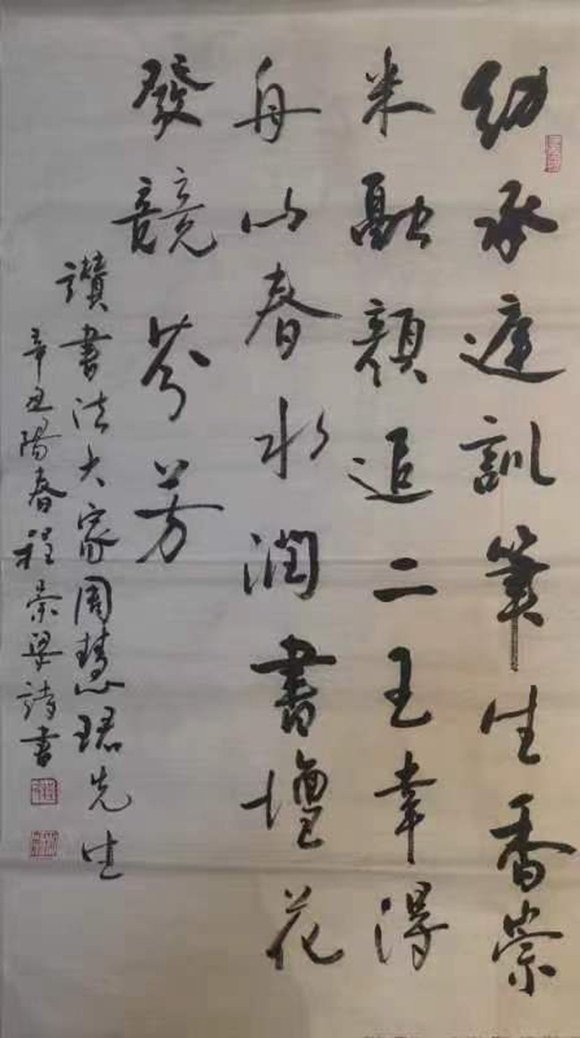 幼承庭訓筆生香崇
米融顏追二王幸得
舟山春水潤書壇花
發競芬芳
讚書法大家周慧珺先生
辛丑陽春程景梁詩書